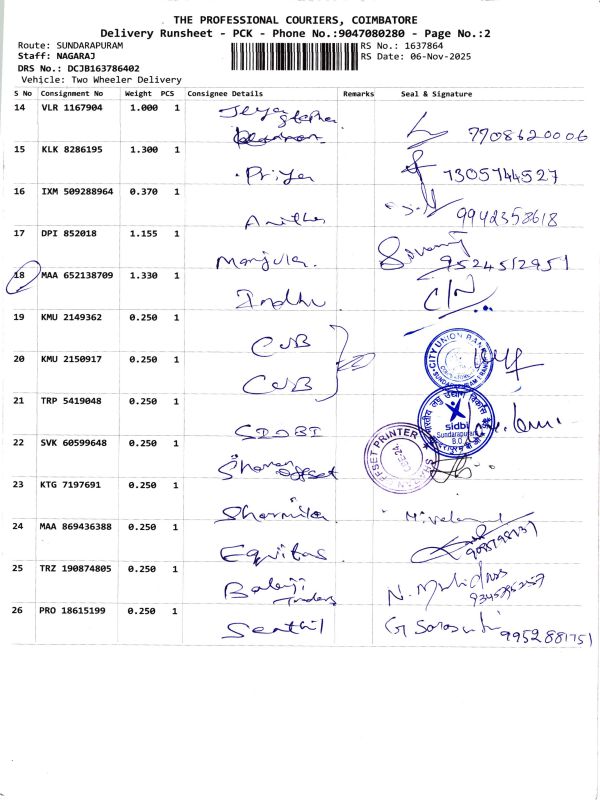 THE PROFESSIONAL COURIERS, COIMBATORE
Delivery Runsheet - PCK - Phone No.:9047080280 - Page No.:2
Route: SUNDARAPURAM RS No.: 1637864
Staff: NAGARAJ RS Date: 06-Nov-2025
DRS No.: DCJB163786402
Vehicle: Two Wheeler Delivery
S No Consignment No Weight PCS Consignee Details Remarks Seal & Signature
14 VLR 1167904 1.000 1 Jeya Stephen 7708620006
15 KLK 8286195 1.300 1 Priya 7305744527
16 IXM 509288964 0.370 1 Anitha 9942358618
17 DPI 852018 1.155 1 Manjula. 9524512951
18 MAA 652138709 1.330 1 Indhu C/N
19 KMU 2149362 0.250 1 CUB
CITY UNION BANK
20 KMU 2150917 0.250 1 CUB
21 TRP 5419048 0.250 1 SIDBI
sidbi
Sundarapuram
B.O
22 SVK 60599648 0.250 1 Sharan offset
OFFSET PRINTER
23 KTG 7197691 0.250 1 Sharmila
24 MAA 869436388 0.250 1 Equitas
25 TRZ 190874805 0.250 1 Balaji Traders
26 PRO 18615199 0.250 1 Senthil 9952881751